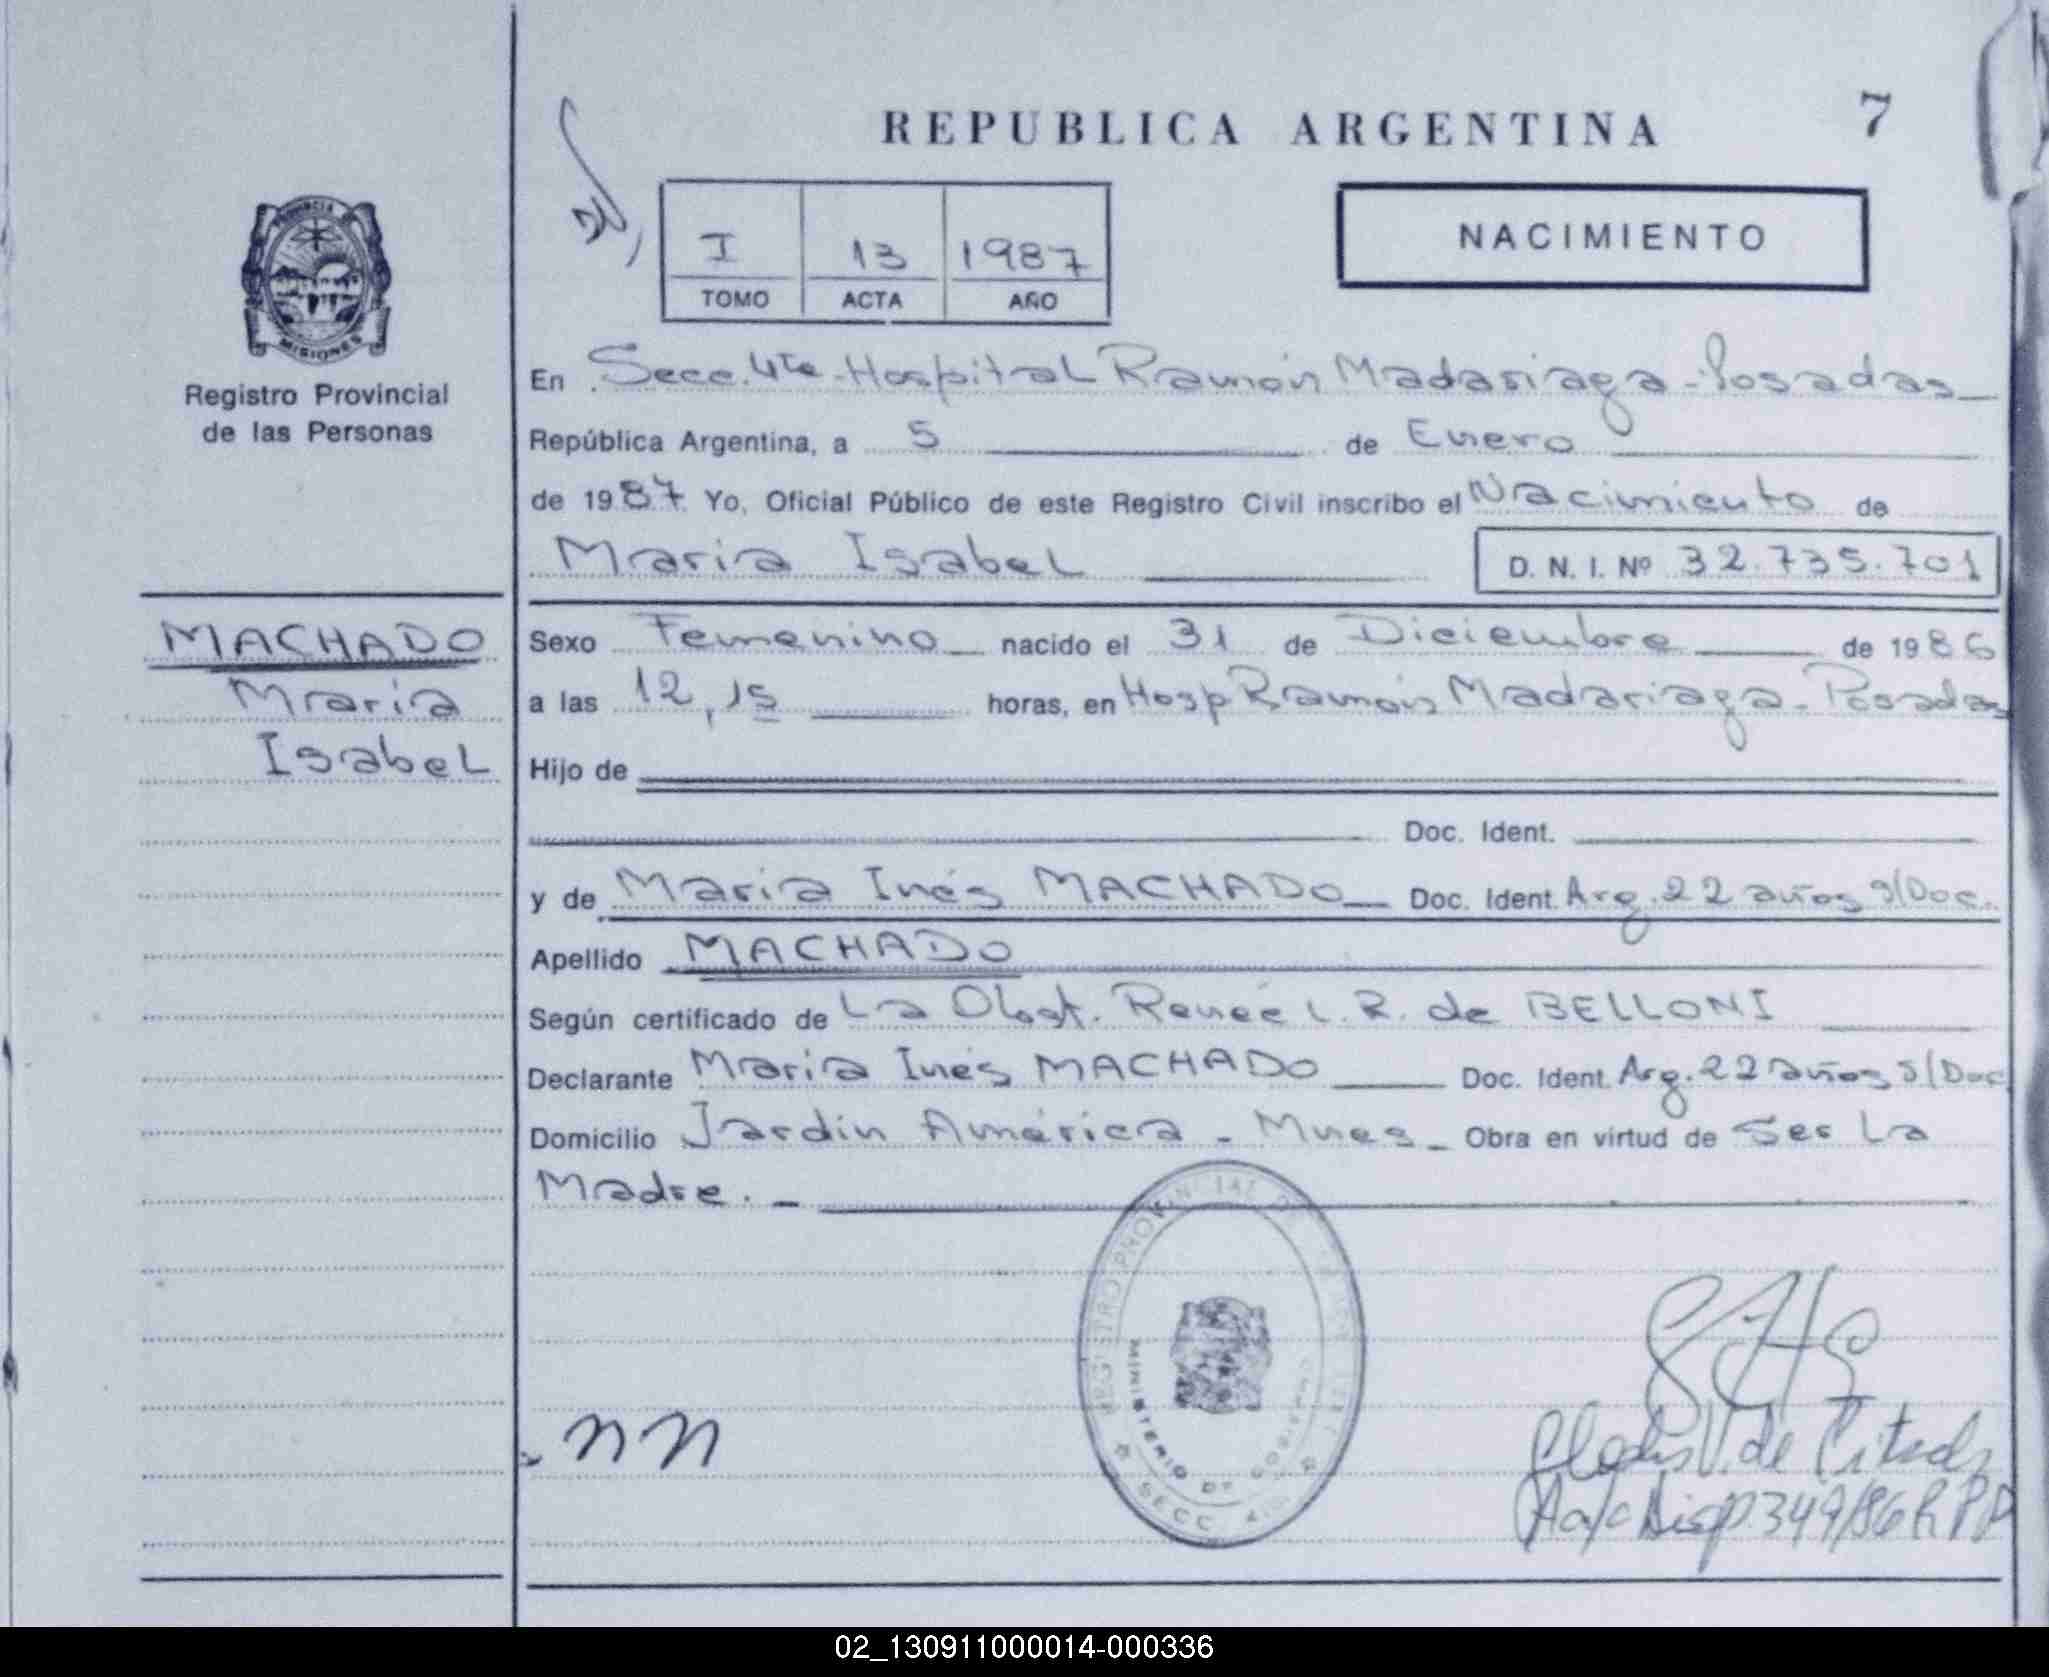 REPUBLICA ARGENTINA
7
I 13 1987
TOMO ACTA AÑO
NACIMIENTO
PROVINCIA
MISIONES
Registro Provincial
de las Personas
MACHADO
Maria
Isabel
En Secc. 4ta - Hospital Ramón Madariaga - Posadas
República Argentina, a 5 de Enero
de 1987. Yo, Oficial Público de este Registro Civil inscribo el Nacimiento de
Maria Isabel D. N. I. Nº 32.735.701
Sexo Femenino nacido el 31 de Diciembre de 1986
a las 12,15 horas, en Hosp Ramón Madariaga - Posadas
Hijo de
Doc. Ident.
y de Maria Inés MACHADO Doc. Ident. Arg. 22 años s/Doc.
Apellido MACHADO
Según certificado de La Obst. Renée L. R. de BELLONI
Declarante Maria Inés MACHADO Doc. Ident. Arg. 22 años s/Doc
Domicilio Jardin América - Mnes - Obra en virtud de Ser La
Madre. -
REGISTRO PROVINCIAL DE
MINISTERIO DE GOBIERNO
SECC. 4
de
A/c Disp. 349/86 R P P
02_130911000014-000336